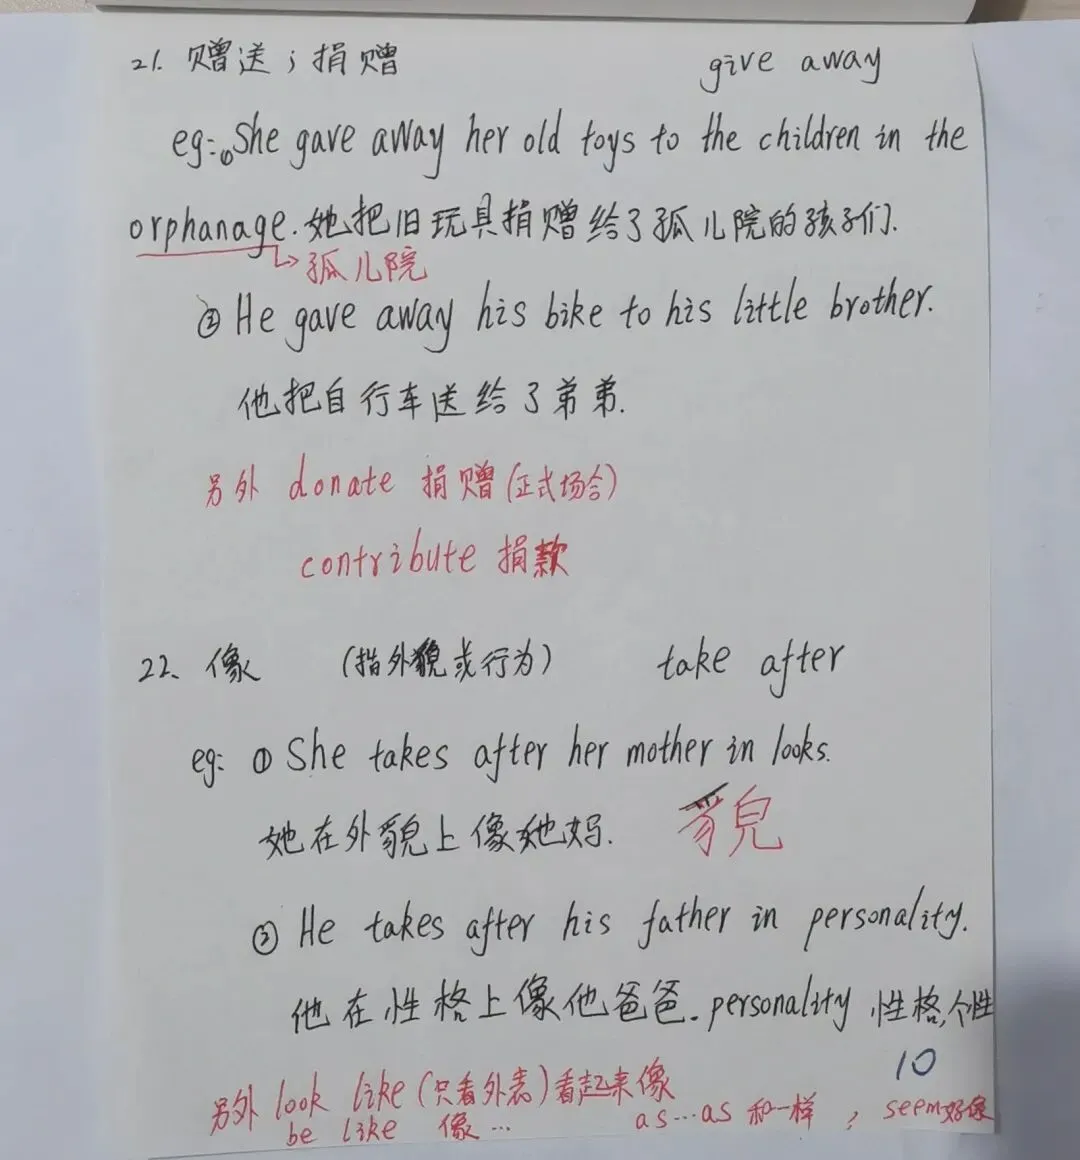 21. 赠送；捐赠 give away
eg: ① She gave away her old toys to the children in the
orphanage. 她把旧玩具捐赠给了孤儿院的孩子们.
孤儿院
② He gave away his bike to his little brother.
他把自行车送给了弟弟.
另外 donate 捐赠(正式场合)
contribute 捐款
22. 像 (指外貌或行为) take after
eg: ① She takes after her mother in looks.
她在外貌上像她妈. 貌
② He takes after his father in personality.
他在性格上像他爸爸. personality 性格,个性
10
另外 look like (只看外表) 看起来像
be like 像… as…as 和一样, seem好像